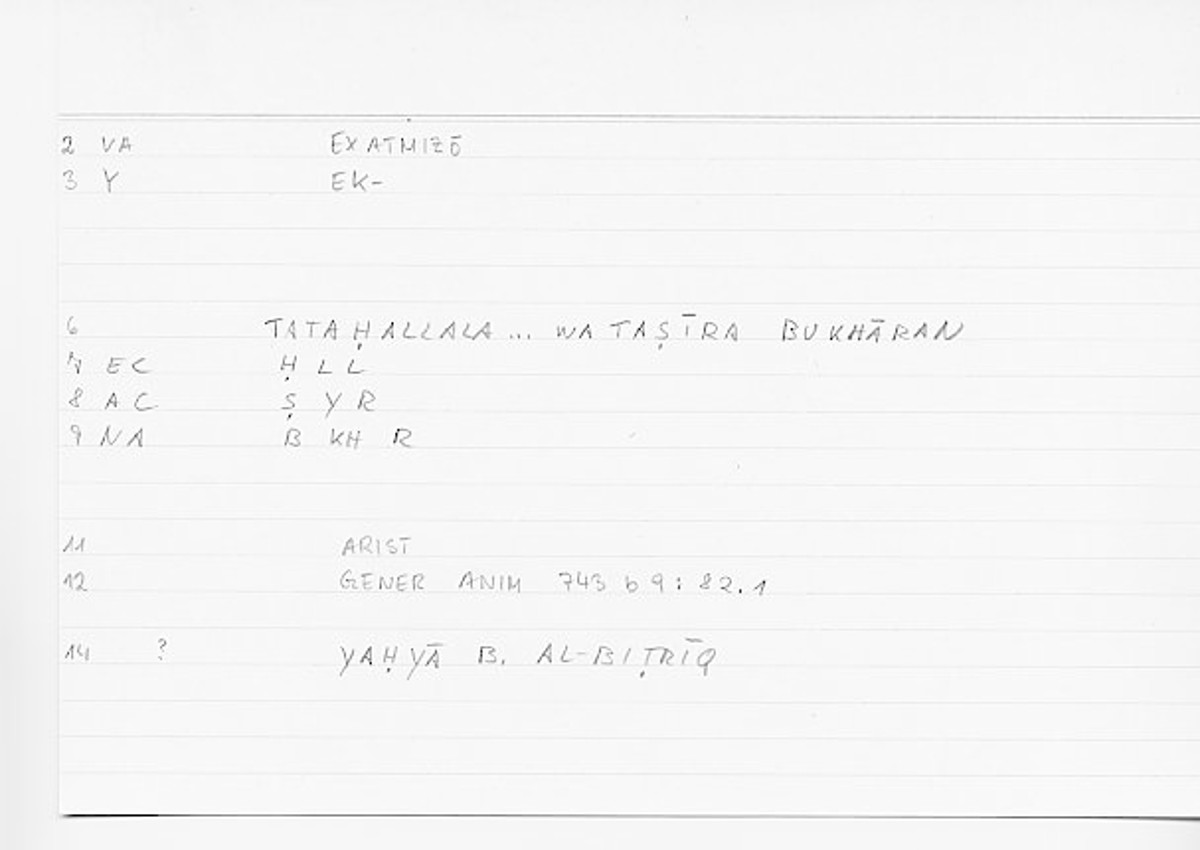 2 VA EXATMIZŌ
3 Y EK-
6 TATAḤALLALA... WA TAṢĪRA BUKHĀRAN
7 EC Ḥ L L
8 AC Ṣ Y R
9 NA B KH R
11 ARIST
12 GENER ANIM 743 b 9: 82.1
14 ? YAḤYĀ B. AL-BIṬRĪQ